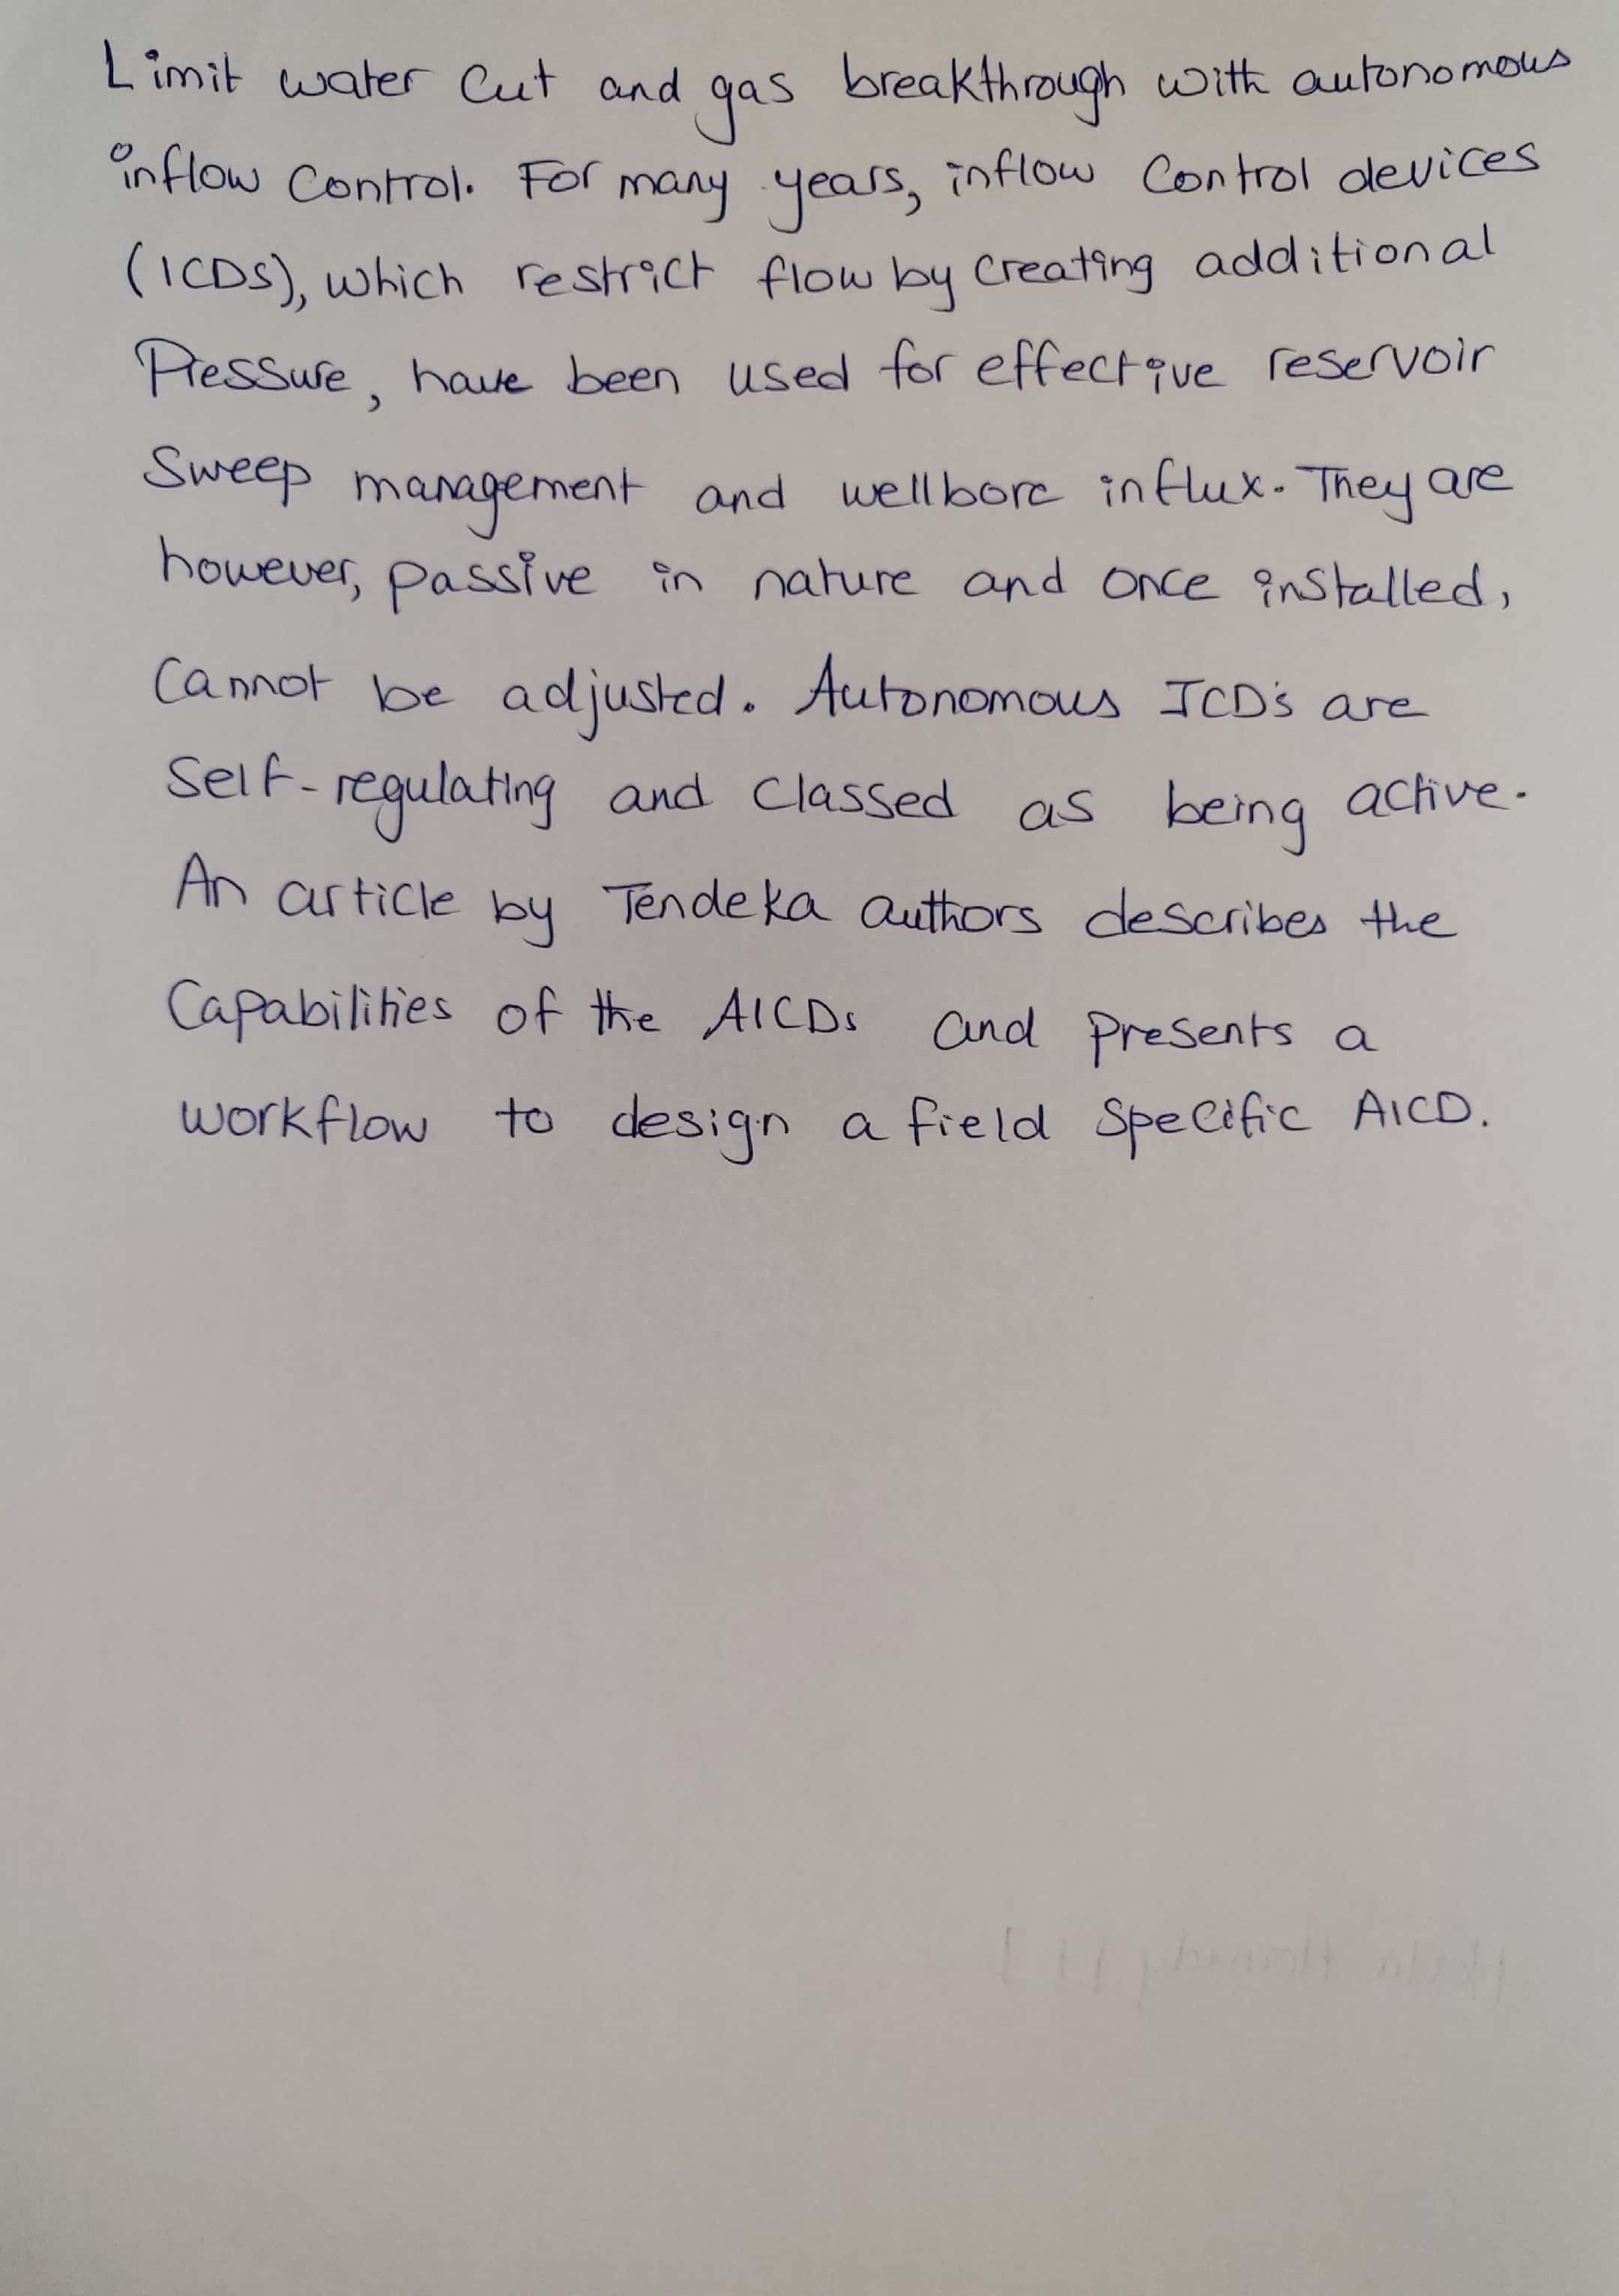 Limit water cut and gas breakthrough with autonomous
inflow control. For many years, inflow control devices
(ICDs), which restrict flow by creating additional
Pressure, have been used for effective reservoir
Sweep management and wellbore influx. They are
however, passive in nature and once installed,
cannot be adjusted. Autonomous ICD's are
Self-regulating and classed as being active.
An article by Tendeka authors describes the
Capabilities of the AICDs and presents a
workflow to design a field specific AICD.